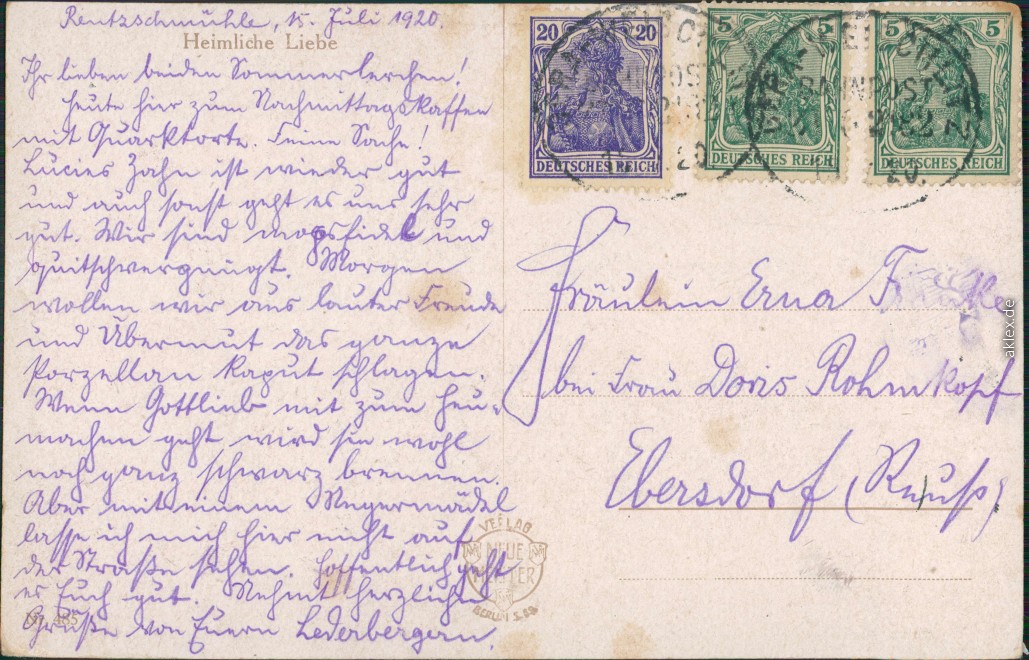 Rentzschmühle, 15. Juli 1920.
Heimliche Liebe
Ihr lieben beiden Sommerlerchen!
Heute hier zum Nachmittagskaffee
mit Quarktorte. Feine Sache!
Lucies Zahn ist wieder gut
und auch sonst geht es uns sehr
gut. Wir sind mopsfidel und
quitschvergnügt. Morgen
wollen wir aus lauter Freude
und Übermut das ganze
Porzellan kaput schlagen.
Wenn Gottlieb mit zum Heu-
machen geht wird sie wohl
noch ganz schwarz brennen.
Aber mit einem Negermädel
lasse ich mich hier nicht auf
der Straße sehen. Hoffentlich geht
es Euch gut. Nehmt herzliche
Grüße von Euern Lederbergern.
Nr. 485
VERLAG
NEUE
MEISTER
BERLIN
20 20
DEUTSCHES REICH
5 5
DEUTSCHES REICH
5 5
DEUTSCHES REICH
BAHNPOST
Fräulein Erna
bei Frau Doris Rohmkopf
Ebersdorf (Reuß)
aklex.de